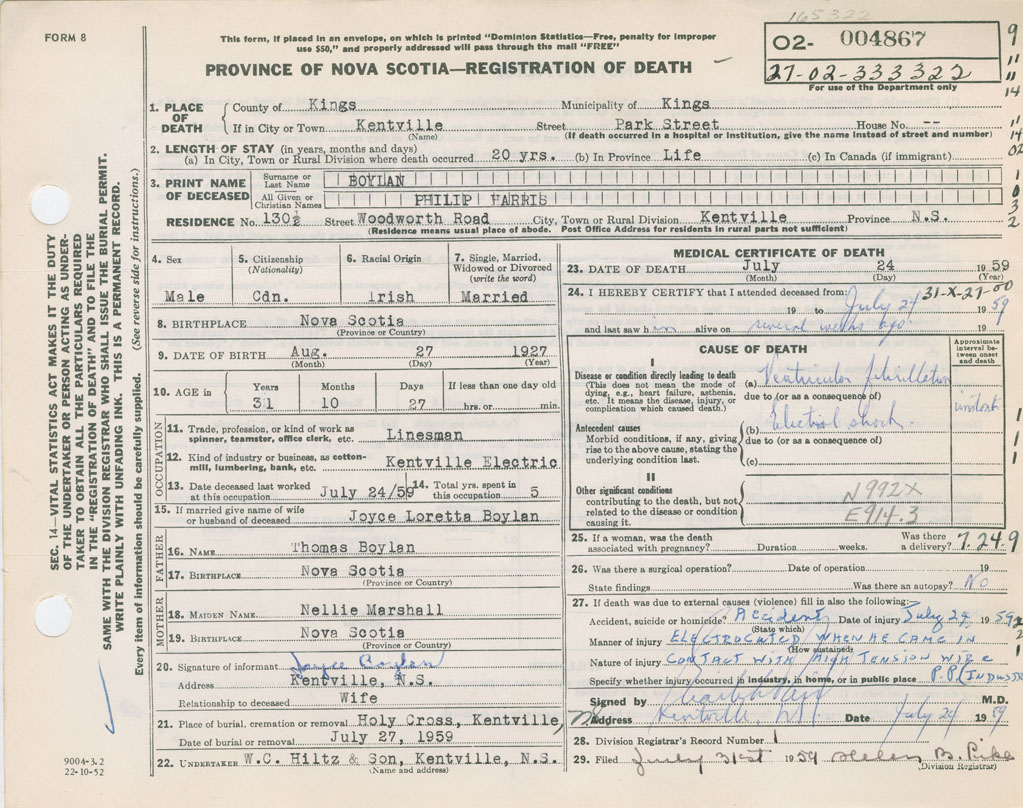 165322
FORM 8
This form, if placed in an envelope, on which is printed "Dominion Statistics—Free, penalty for improper
use $50," and properly addressed will pass through the mail "FREE"
PROVINCE OF NOVA SCOTIA—REGISTRATION OF DEATH
02- 004867
27-02-333322
For use of the Department only
9
11
11
14
11
14
02
1
1
0
3
2
1. PLACE OF DEATH
County of Kings Municipality of Kings
If in City or Town Kentville Street Park Street House No. --
(Name) (If death occurred in a hospital or institution, give the name instead of street and number)
2. LENGTH OF STAY (in years, months and days)
(a) In City, Town or Rural Division where death occurred 20 yrs. (b) In Province Life (c) In Canada (if immigrant)
3. PRINT NAME OF DECEASED
Surname or Last Name BOYLAN
All Given or Christian Names PHILIP HARRIS
RESIDENCE No. 130½ Street Woodworth Road City, Town or Rural Division Kentville Province N.S.
(Residence means usual place of abode. Post Office Address for residents in rural parts not sufficient)
4. Sex
Male
5. Citizenship
(Nationality)
Cdn.
6. Racial Origin
Irish
7. Single, Married,
Widowed or Divorced
(write the word)
Married
8. BIRTHPLACE Nova Scotia
(Province or Country)
9. DATE OF BIRTH Aug. 27 1927
(Month) (Day) (Year)
10. AGE in
Years Months Days If less than one day old
31 10 27 hrs. or min.
OCCUPATION
11. Trade, profession, or kind of work as
spinner, teamster, office clerk, etc. Linesman
12. Kind of industry or business, as cotton-
mill, lumbering, bank, etc. Kentville Electric
13. Date deceased last worked
at this occupation July 24/59
14. Total yrs. spent in
this occupation 5
15. If married give name of wife
or husband of deceased Joyce Loretta Boylan
FATHER
16. NAME Thomas Boylan
17. BIRTHPLACE Nova Scotia
(Province or Country)
MOTHER
18. MAIDEN NAME Nellie Marshall
19. BIRTHPLACE Nova Scotia
(Province or Country)
20. Signature of informant Joyce Boylan
Address Kentville, N.S.
Relationship to deceased Wife
21. Place of burial, cremation or removal Holy Cross, Kentville,
Date of burial or removal July 27, 1959
22. UNDERTAKER W.C. Hiltz & Son, Kentville, N.S.
(Name and address)
MEDICAL CERTIFICATE OF DEATH
23. DATE OF DEATH July 24 1959
(Month) (Day) (Year)
24. I HEREBY CERTIFY that I attended deceased from: 31-X-27-00
19 to July 24 1959
and last saw him alive on several weeks ago 19
CAUSE OF DEATH
Approximate
interval be-
tween onset
and death
I
Disease or condition directly leading to death
(This does not mean the mode of
dying, e.g., heart failure, asthenia,
etc. It means the disease, injury, or
complication which caused death.)
(a) Ventricular fibrillation
due to (or as a consequence of)
Antecedent causes
Morbid conditions, if any, giving
rise to the above cause, stating the
underlying condition last.
(b) Electrical shock.
due to (or as a consequence of)
(c)
II
Other significant conditions
contributing to the death, but not
related to the disease or condition
causing it.
N992X
E914.3
1
1
1
25. If a woman, was the death
associated with pregnancy? Duration weeks.
Was there
a delivery? 7.24.9
26. Was there a surgical operation? Date of operation 19
State findings Was there an autopsy? No
27. If death was due to external causes (violence) fill in also the following:
Accident, suicide or homicide? Accident Date of injury July 24 1959
(State which)
Manner of injury ELECTROCUTED WHEN HE CAME IN
(How sustained)
Nature of injury CONTACT WITH HIGH TENSION WIRE
Specify whether injury occurred in industry, in home, or in public place P.P. (INDUSTR
Signed by M.D.
Address Kentville, NS Date July 24 1959
28. Division Registrar's Record Number 1
29. Filed July 31st 1959 Helen B. Pike
(Division Registrar)
SEC. 14—VITAL STATISTICS ACT MAKES IT THE DUTY
OF THE UNDERTAKER OR PERSON ACTING AS UNDER-
TAKER TO OBTAIN ALL THE PARTICULARS REQUIRED
IN THE "REGISTRATION OF DEATH" AND TO FILE THE
SAME WITH THE DIVISION REGISTRAR WHO SHALL ISSUE THE BURIAL PERMIT.
WRITE PLAINLY WITH UNFADING INK. THIS IS A PERMANENT RECORD.
Every item of information should be carefully supplied. (See reverse side for instructions.)
9004-3.2
22-10-52